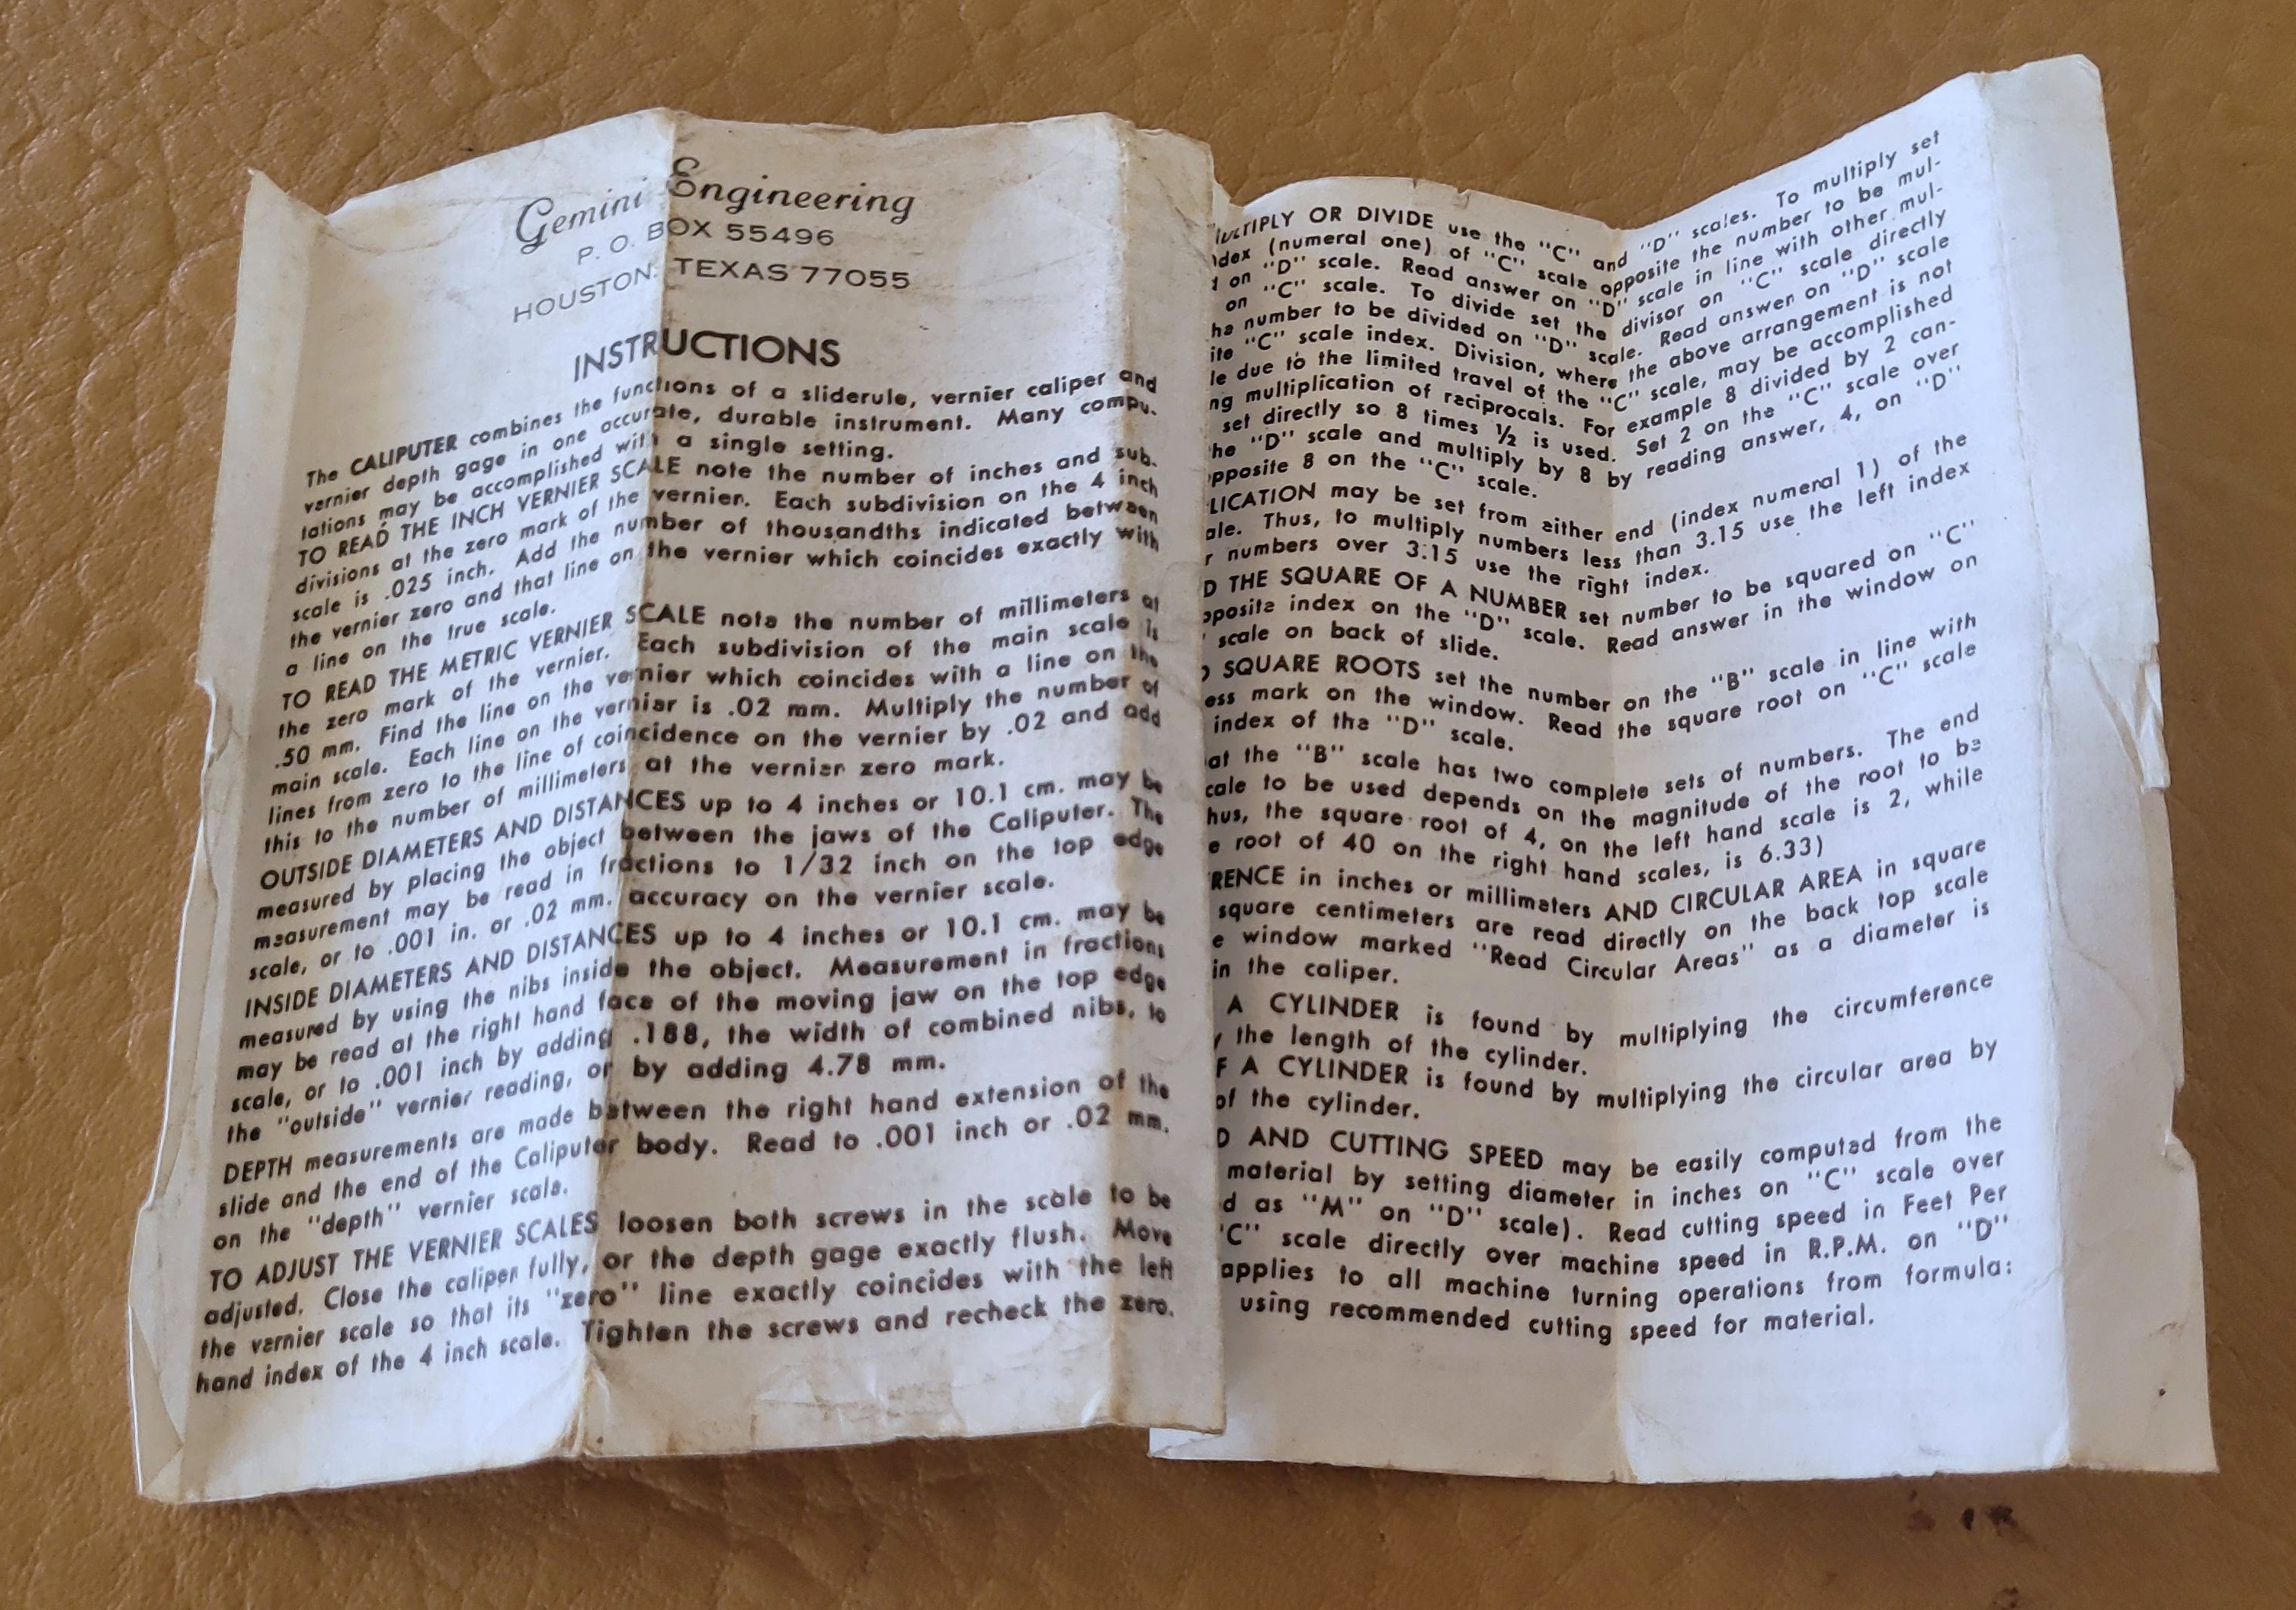 Gemini Engineering
P. O. BOX 55496
HOUSTON, TEXAS 77055
INSTRUCTIONS
The CALIPUTER combines the functions of a sliderule, vernier caliper and
vernier depth gage in one accurate, durable instrument. Many compu-
tations may be accomplished with a single setting.
TO READ THE INCH VERNIER SCALE note the number of inches and sub-
divisions at the zero mark of the vernier. Each subdivision on the 4 inch
scale is .025 inch. Add the number of thousandths indicated between
the vernier zero and that line on the vernier which coincides exactly with
a line on the true scale.
TO READ THE METRIC VERNIER SCALE note the number of millimeters at
the zero mark of the vernier. Each subdivision of the main scale is
.50 mm. Find the line on the vernier which coincides with a line on the
main scale. Each line on the vernier is .02 mm. Multiply the number of
lines from zero to the line of coincidence on the vernier by .02 and add
this to the number of millimeters at the vernier zero mark.
OUTSIDE DIAMETERS AND DISTANCES up to 4 inches or 10.1 cm. may be
measured by placing the object between the jaws of the Caliputer. The
measurement may be read in fractions to 1/32 inch on the top edge
scale, or to .001 in. or .02 mm. accuracy on the vernier scale.
INSIDE DIAMETERS AND DISTANCES up to 4 inches or 10.1 cm. may be
measured by using the nibs inside the object. Measurement in fractions
may be read at the right hand face of the moving jaw on the top edge
scale, or to .001 inch by adding .188, the width of combined nibs, to
the "outside" vernier reading, or by adding 4.78 mm.
DEPTH measurements are made between the right hand extension of the
slide and the end of the Caliputer body. Read to .001 inch or .02 mm.
on the "depth" vernier scale.
TO ADJUST THE VERNIER SCALES loosen both screws in the scale to be
adjusted. Close the caliper fully, or the depth gage exactly flush. Move
the vernier scale so that its "zero" line exactly coincides with the left
hand index of the 4 inch scale. Tighten the screws and recheck the zero.
MULTIPLY OR DIVIDE use the "C" and "D" scales. To multiply set
ndex (numeral one) of "C" scale opposite the number to be mul-
d on "D" scale. Read answer on "D" scale in line with other mul-
on "C" scale. To divide set the divisor on "C" scale directly
he number to be divided on "D" scale. Read answer on "D" scale
ite "C" scale index. Division, where the above arrangement is not
le due to the limited travel of the "C" scale, may be accomplished
ng multiplication of reciprocals. For example 8 divided by 2 can-
set directly so 8 times ½ is used. Set 2 on the "C" scale over
he "D" scale and multiply by 8 by reading answer, 4, on "D"
pposite 8 on the "C" scale.
LICATION may be set from either end (index numeral 1) of the
ale. Thus, to multiply numbers less than 3.15 use the left index
r numbers over 3.15 use the right index.
D THE SQUARE OF A NUMBER set number to be squared on "C"
pposite index on the "D" scale. Read answer in the window on
scale on back of slide.
SQUARE ROOTS set the number on the "B" scale in line with
ess mark on the window. Read the square root on "C" scale
index of the "D" scale.
at the "B" scale has two complete sets of numbers. The end
cale to be used depends on the magnitude of the root to be
hus, the square root of 4, on the left hand scale is 2, while
e root of 40 on the right hand scales, is 6.33)
RENCE in inches or millimeters AND CIRCULAR AREA in square
square centimeters are read directly on the back top scale
e window marked "Read Circular Areas" as a diameter is
in the caliper.
A CYLINDER is found by multiplying the circumference
y the length of the cylinder.
F A CYLINDER is found by multiplying the circular area by
of the cylinder.
D AND CUTTING SPEED may be easily computed from the
material by setting diameter in inches on "C" scale over
d as "M" on "D" scale). Read cutting speed in Feet Per
"C" scale directly over machine speed in R.P.M. on "D"
applies to all machine turning operations from formula:
using recommended cutting speed for material.